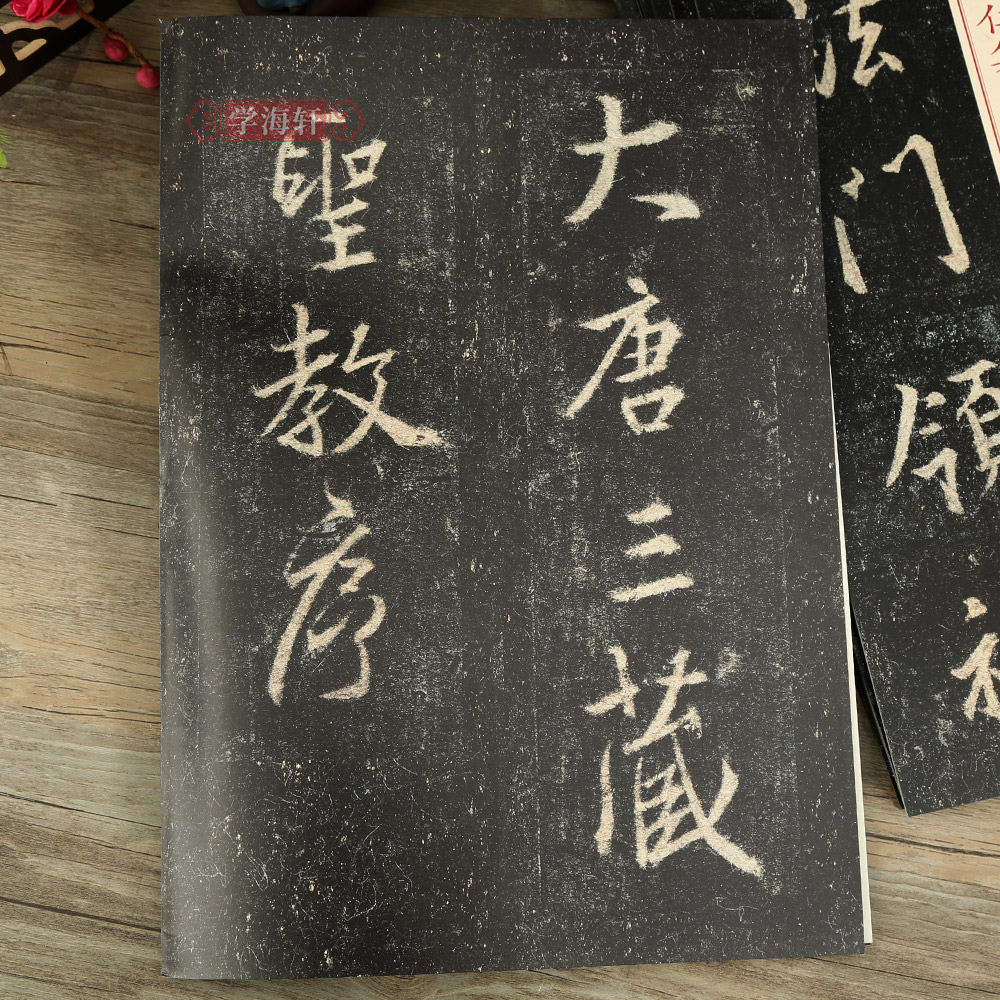 大唐三藏
聖教序
法门领
学海轩